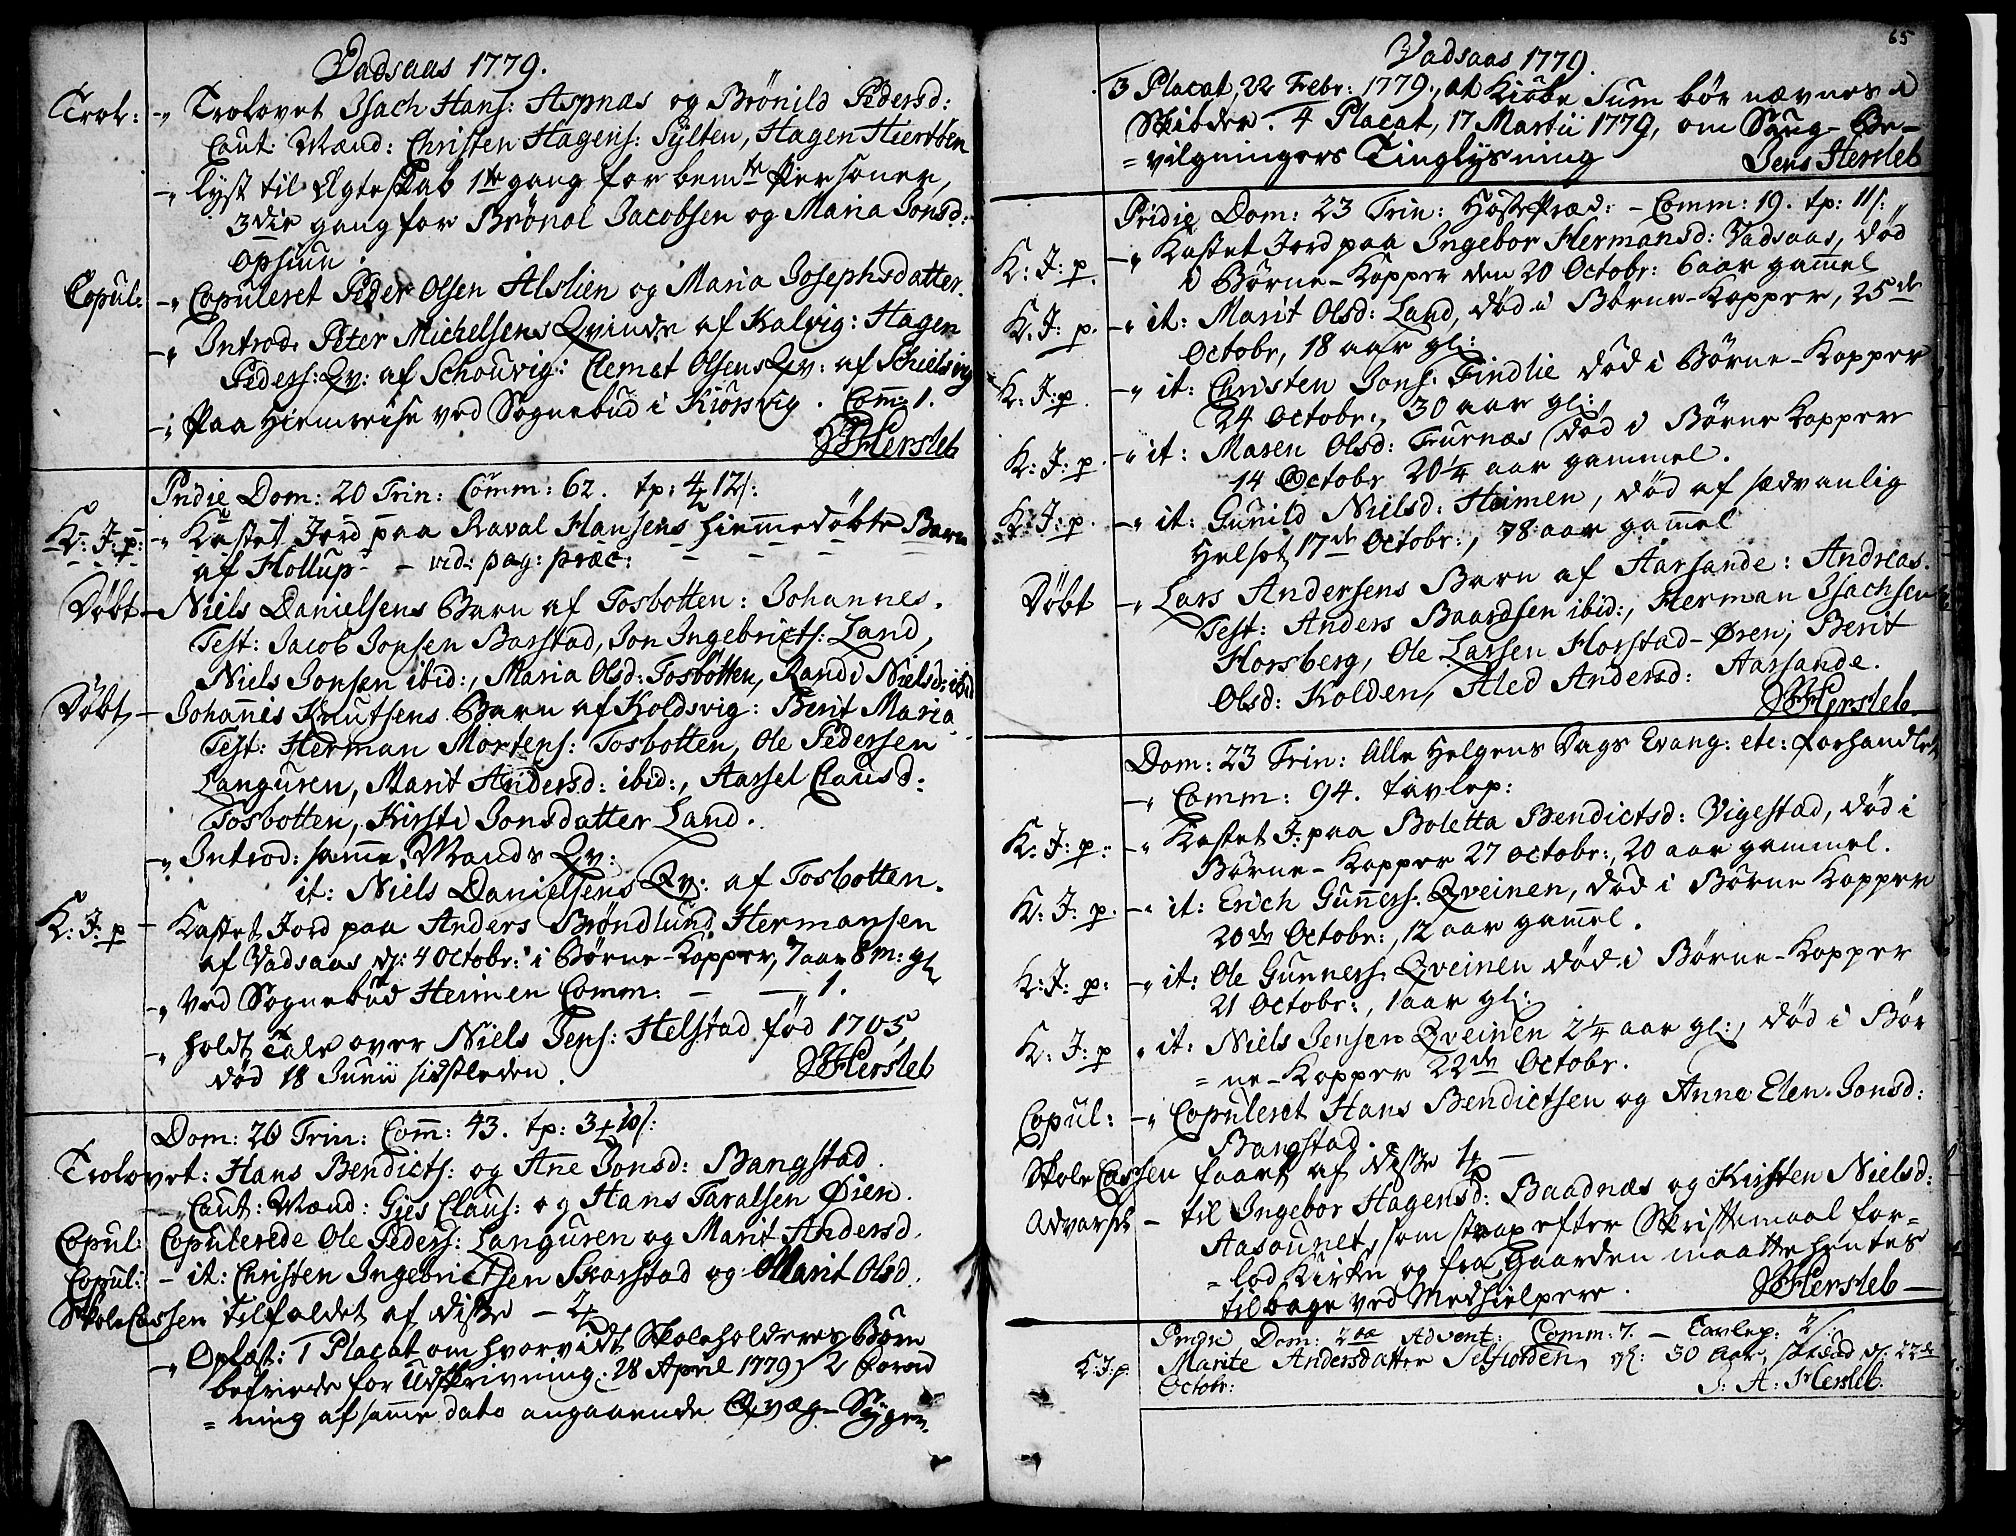 Vadsaas 1779.
Trol: -„ Trolovet Isach Hans: Aspnæs og Brönild Pedersd:
Caut: Mænd: Christen Hagens: Sylten, Hagen
-„ Lyst til Ægteskab 1te gang for bemte Personer,
3die gang for Brönol Jacobsen og Maria Jonsd:
Opsiun.
Copul: -„ Copuleret Peder Olsen Alslien og Maria Josephsdatter.
-„ Introd. Peter Michelsens Qvinde af Kalvig: Hagen
Peders: Qv: af Schouvig: Clemet Olsens Qv: af Schielsvig
-„ Paa Hiemreise ved Sognebud i Kiørsvig. Com: 1.
Hersleb
Pridie Dom: 20 Trin: Comm: 62. tp: 4 12s:
K: J: p: -„ Kastet Jord paa Raval Hansens hiemmedøbte Barn
af Hollup - vid: pag: præc:
Døbt - Niels Danielsens Barn af Tosbotten: Johannes.
Test: Jacob Jonsen Barstad, Jon Ingebricts: Land,
Niels Jonsen ibid:, Maria Olsd: Tosbotten, Randi Nielsd: ibid
Døbt - Johannes Knutsens Barn af Koldsvig: Berit Maria
Test: Herman Mortens: Tosbotten, Ole Pedersen
Languren, Marit Andersd: ibid:, Aarsel Clausd:
Tosbotten, Kirsti Jonsdatter Land.
-„ Introd: samme Mands Qv:
it: Niels Danielsens Qv: af Tosbotten.
K: J: p - Kastet Jord paa Anders Brøndlund Hermansen
af Vadsaas d: 4 Octobr: i Børne-Kopper, 7 aar 8 m: gl
-„ Ved Sognebud Heimen Comm: - - 1.
-„ holdt Tale over Niels Jens: Helstad fød 1705,
død 18 Junii sidstleden.
Hersleb
Dom: 20 Trin: Com: 43. tp: 3 10s:
Trolovet: Hans Bendicts: og Ane Jonsd: Bangstad.
- Caut: Mænd: Gies Claus: og Hans Taralsen Øien.
Copul: Copulerede Ole Peders: Languren og Marit Andersd.
Copul: - it: Christen Ingebrictsen Skarstad og Marit Olsd.
Skole Cassen tilfaldet af disse - 2
-„ Oplæst: 1 Placat om hvorvidt Skoleholderes Børn
befriede for Udskrivning, 28 April 1779) 2 Forord
= ning af samme dato angaaende Qvæg-Sygen.
65
Vadsaas 1779.
3 Placat, 22 Febr: 1779., at Kiøbe Sum bør nævnes i
Skiøder. 4 Placat, 17 Martii 1779, om Be-
= vilgningers Tinglysning Jens Hersleb
Pridie Dom: 23 Trin: HøstePræd: - Comm: 19. tp: 11s:
K: J: p. -„ Kastet Jord paa Ingebor Hermansd: Vadsaas, død
i Børne-Kopper den 20 Octobr: 6 aar gammel
K: J: p. -„ it: Marit Olsd: Land, død i Børne-Kopper, 25de
Octobr, 18 aar gl:
K: J: p. -„ it: Christen Jons: Tindlie død i Børne-Kopper
24 Octobr:, 30 aar gl:,
K: J: p. -„ it: Maren Olsd: Truenæs død i Børne Kopper
14 Octobr 20 1/4 aar gammel.
K: J: p. -„ it: Gunild Nielsd: Heimen, død af sædvanlig
Helsot 17de Octobr:, 78 aar gammel
Døbt -„ Lars Andersens Barn af Aarsande: Andreas.
Test: Anders Baardsen ibid:, Herman Isachsen
Horsberg, Ole Larsen Horstad-Øren, Berit
Olsd: Kolden, Aled Andersd: Aarsande.
Hersleb
Dom: 23 Trin: Alle Helgens Dags Evang: etc: forhandlet
-„ Comm: 94. tavlep:
K: J: p: -„ Kastet J: paa Boletta Bendictsd: Vigestad, død i
Børne-Kopper 27 octobr:, 20 aar gammel.
K: J: p. -„ it: Erich Guners: Qveinen, død i Børne Kopper
20de Octobr:, 12 aar gammel.
K: J: p: -„ it: Ole Gunners: Qveinen død i Børne-Kopper
21 Octobr:, 1 aar gl:
K: J: p „ it: Niels Jensen Qveinen 2 1/4 aar gl:, død i Bør
= ne-Kopper 22de Octobr.
Copul: -„ Copuleret Hans Bendictsen og Anne Elen Jonsd:
Bangstad.
Skole Cassen faaet af disse 1
Advarsel - til Ingebor Hagensd: Baadnæs og Kirsten Nielsd:
Aasounet, som strax efter Skriftemaal for=
= lod Kirken og fra Gaarden maatte hentes
tilbage ved Medhielpere. Hersleb -
Pridie Dom: 2da Advent: Comm: 7. - Tavlep: 2s:
K: J: p: Marite Andersdatter Selfiorden, gl: 30 Aar, død d. 22de
Octobr: J: A: Hersleb.